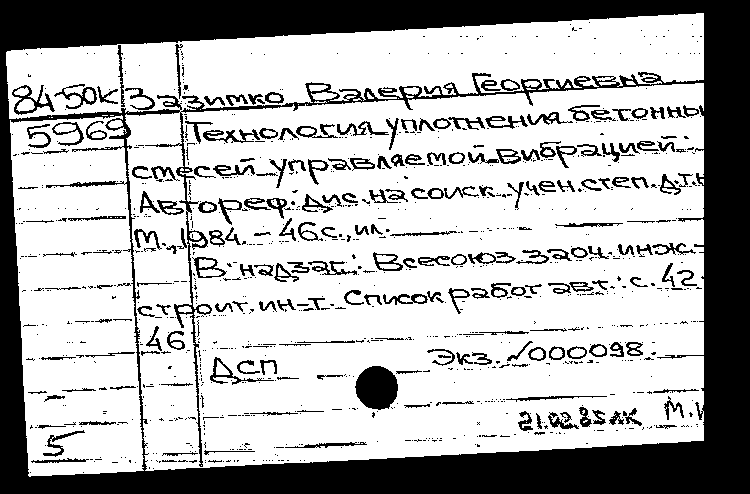 84-50К Зазимко, Валерия Георгиевна.
5969 Технология уплотнения бетонны
смесей управляемой вибрацией:
Автореф. дис. на соиск. учен. степ. д.т.н
М., 1984. – 46 с., ил.
В надзаг.: Всесоюз. заоч. инж.-
строит. ин-т. Список работ авт.: с. 42-
46
ДСП Экз. №000098.
21.02.85 ЛК М.И
5